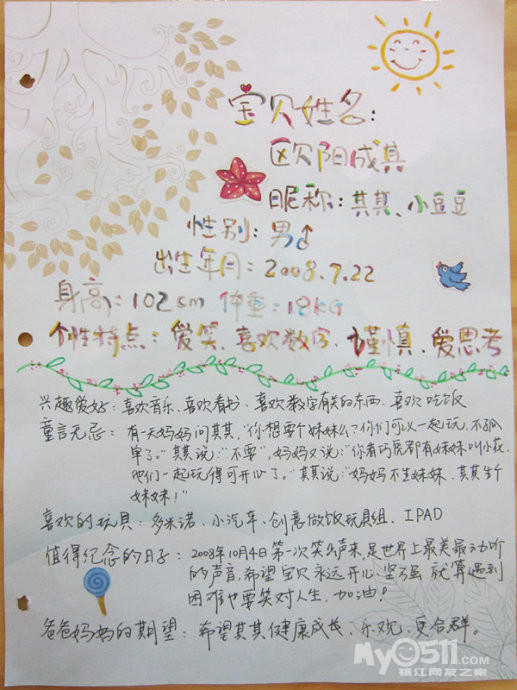 宝贝姓名：
欧阳成其
昵称：其其、小豆豆
性别：男♂
出生年月：2008.7.22
身高：102cm 体重：18KG
个性特点：爱笑、喜欢数字、谨慎、爱思考
兴趣爱好：喜欢音乐、喜欢看书、喜欢数字有关的东西、喜欢吃饭
童言无忌：有一天妈妈问其其，“你想要个妹妹么？你们可以一起玩，不孤
单了。”其其说：“不要”，妈妈又说：“你看巧虎都有妹妹叫小花，
他们一起玩得可开心了。”其其说：“妈妈不生妹妹，其其生个
妹妹！”
喜欢的玩具：多米诺、小汽车、创意做饭玩具组、IPAD
值得纪念的日子：2008年10月4日第一次笑出声来，是世界上最美最动听
的声音，希望宝贝永远开心、坚强，就算遇到
困难也要笑对人生，加油！
爸爸妈妈的期望：希望其其健康成长、乐观、更合群。
My0511.com
镇江网友之家